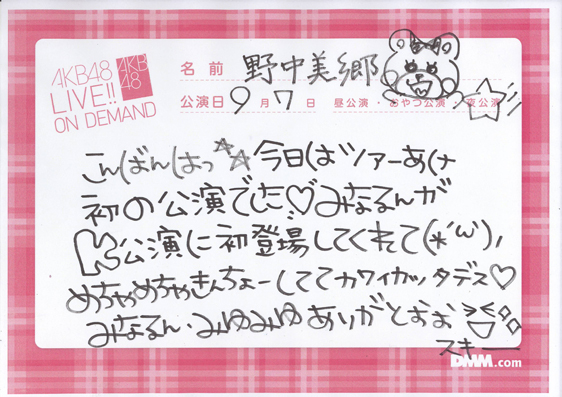 AKB48
LIVE!!
ON DEMAND
AKB
48
名前 野中美郷
公演日 9月7日 昼公演・おやつ公演・夜公演
こんばんはっ☆☆今日はツアーあけ
初の公演でした♡みなるんが
K公演に初登場してくれて(*´ω`),
めちゃめちゃきんちょーしててカワイカッタデス♡
みなるん・みゆみゆありがとおお
スキー
DMM.com